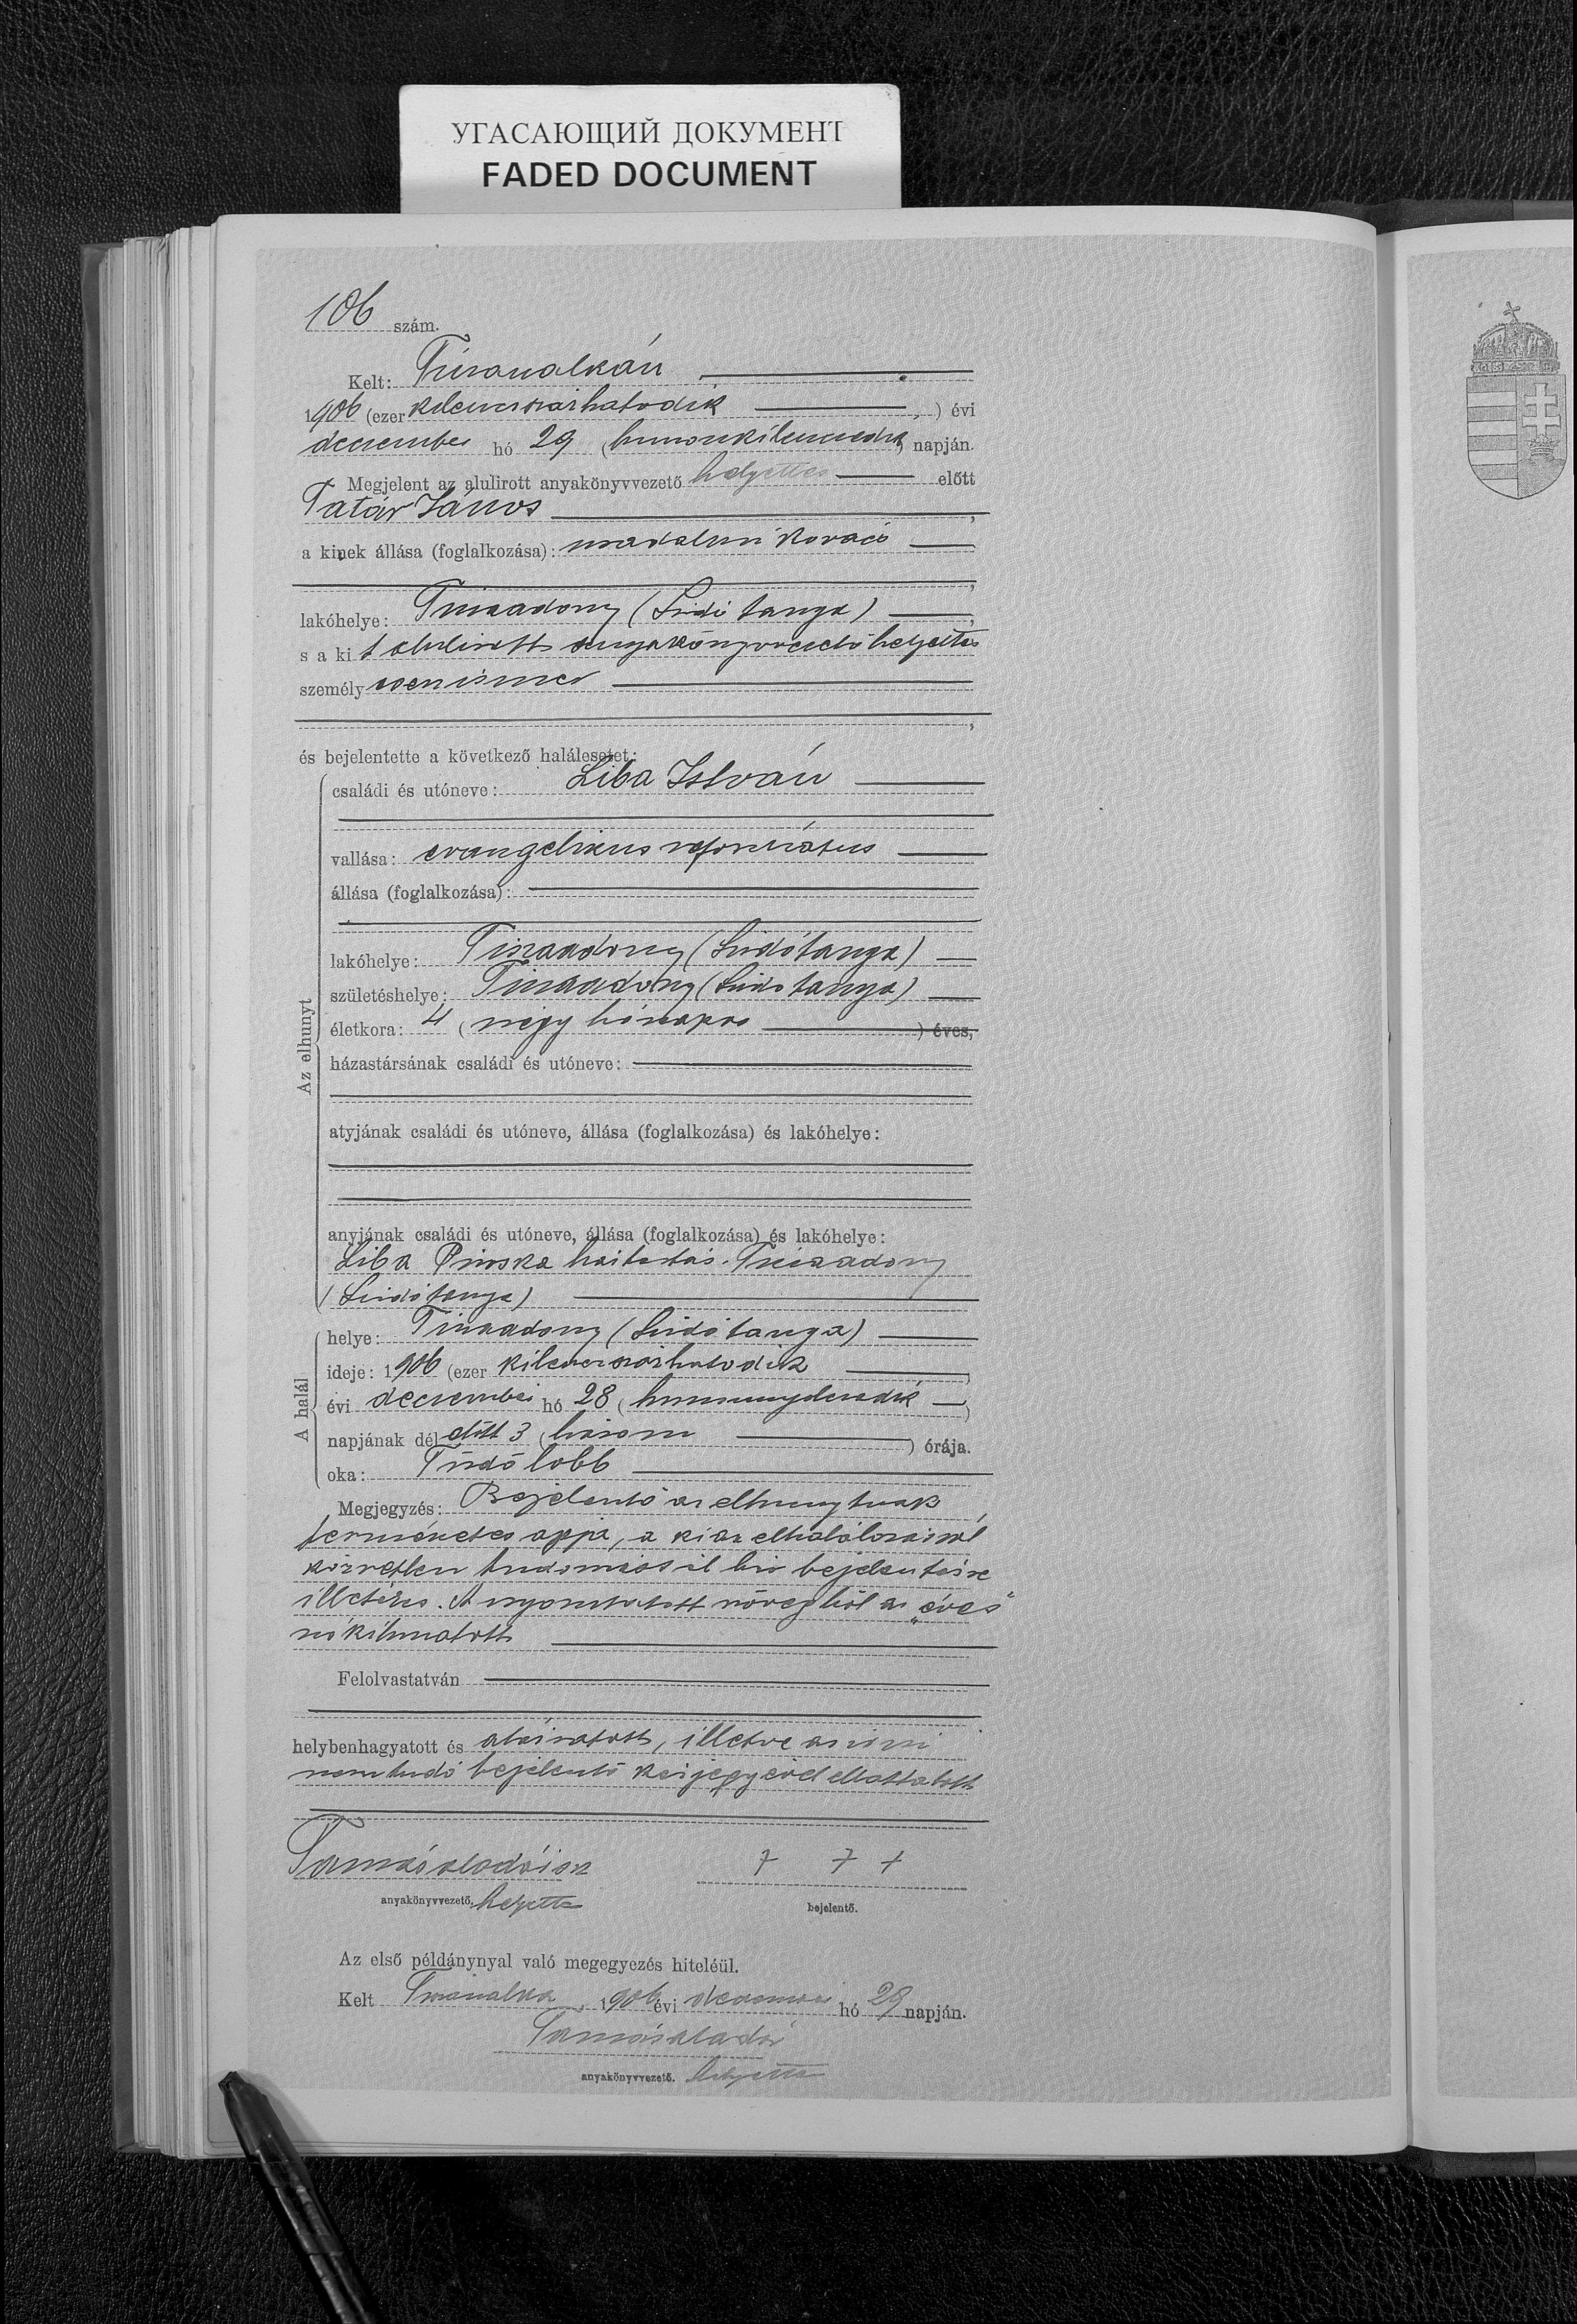 УГАСАЮЩИЙ ДОКУМЕНТ
FADED DOCUMENT
106 szám.
Kelt: Tiszaszalkán
1906 (ezer kilencszázhatodik ) évi
december hó 29 (huszonkilencedik) napján.
Megjelent az alulirott anyakönyvvezető helyettes előtt
Tatár János,
a kinek állása (foglalkozása): uradalmi kovács
,
lakóhelye: Tiszaadony ( tanya),
s a kit alulirott anyakönyvvezető helyettes
személyesen ismer
,
és bejelentette a következő halálesetet:
Az elhunyt
családi és utóneve: Liba István
vallása: evangelikus református
állása (foglalkozása):
lakóhelye: Tiszaadony ( tanya)
születéshelye: Tiszaadony ( tanya)
életkora: 4 (négy hónapos ) éves,
házastársának családi és utóneve:
atyjának családi és utóneve, állása (foglalkozása) és lakóhelye:
anyjának családi és utóneve, állása (foglalkozása) és lakóhelye:
Liba Piroska háztartás. Tiszaadony
( tanya)
A halál
helye: Tiszaadony ( tanya)
ideje: 1906 (ezer kilencszázhatodik
évi december hó 28 (huszonnyolcadik)
napjának dél előtt 3 (három ) órája.
oka: Tüdőlobb
Megjegyzés: Bejelentő az elhunytnak
természetes apja, a ki az elhalálozásról
közvetlen tudomással bir bejelentésre
illetékes. A nyomtatott szövegből az „éves"
szó kihuzatott
Felolvastatván
helybenhagyatott és aláiratott, illetve az irni
nem tudó bejelentő kézjegyével elláttatott
Tamás Aladár sk
+ + +
anyakönyvvezető. helyettes
bejelentő.
Az első példánynyal való megegyezés hiteléül.
Kelt Tiszaszalka, 1906 évi december hó 29 napján.
Tamás Aladár
anyakönyvvezető. helyettes